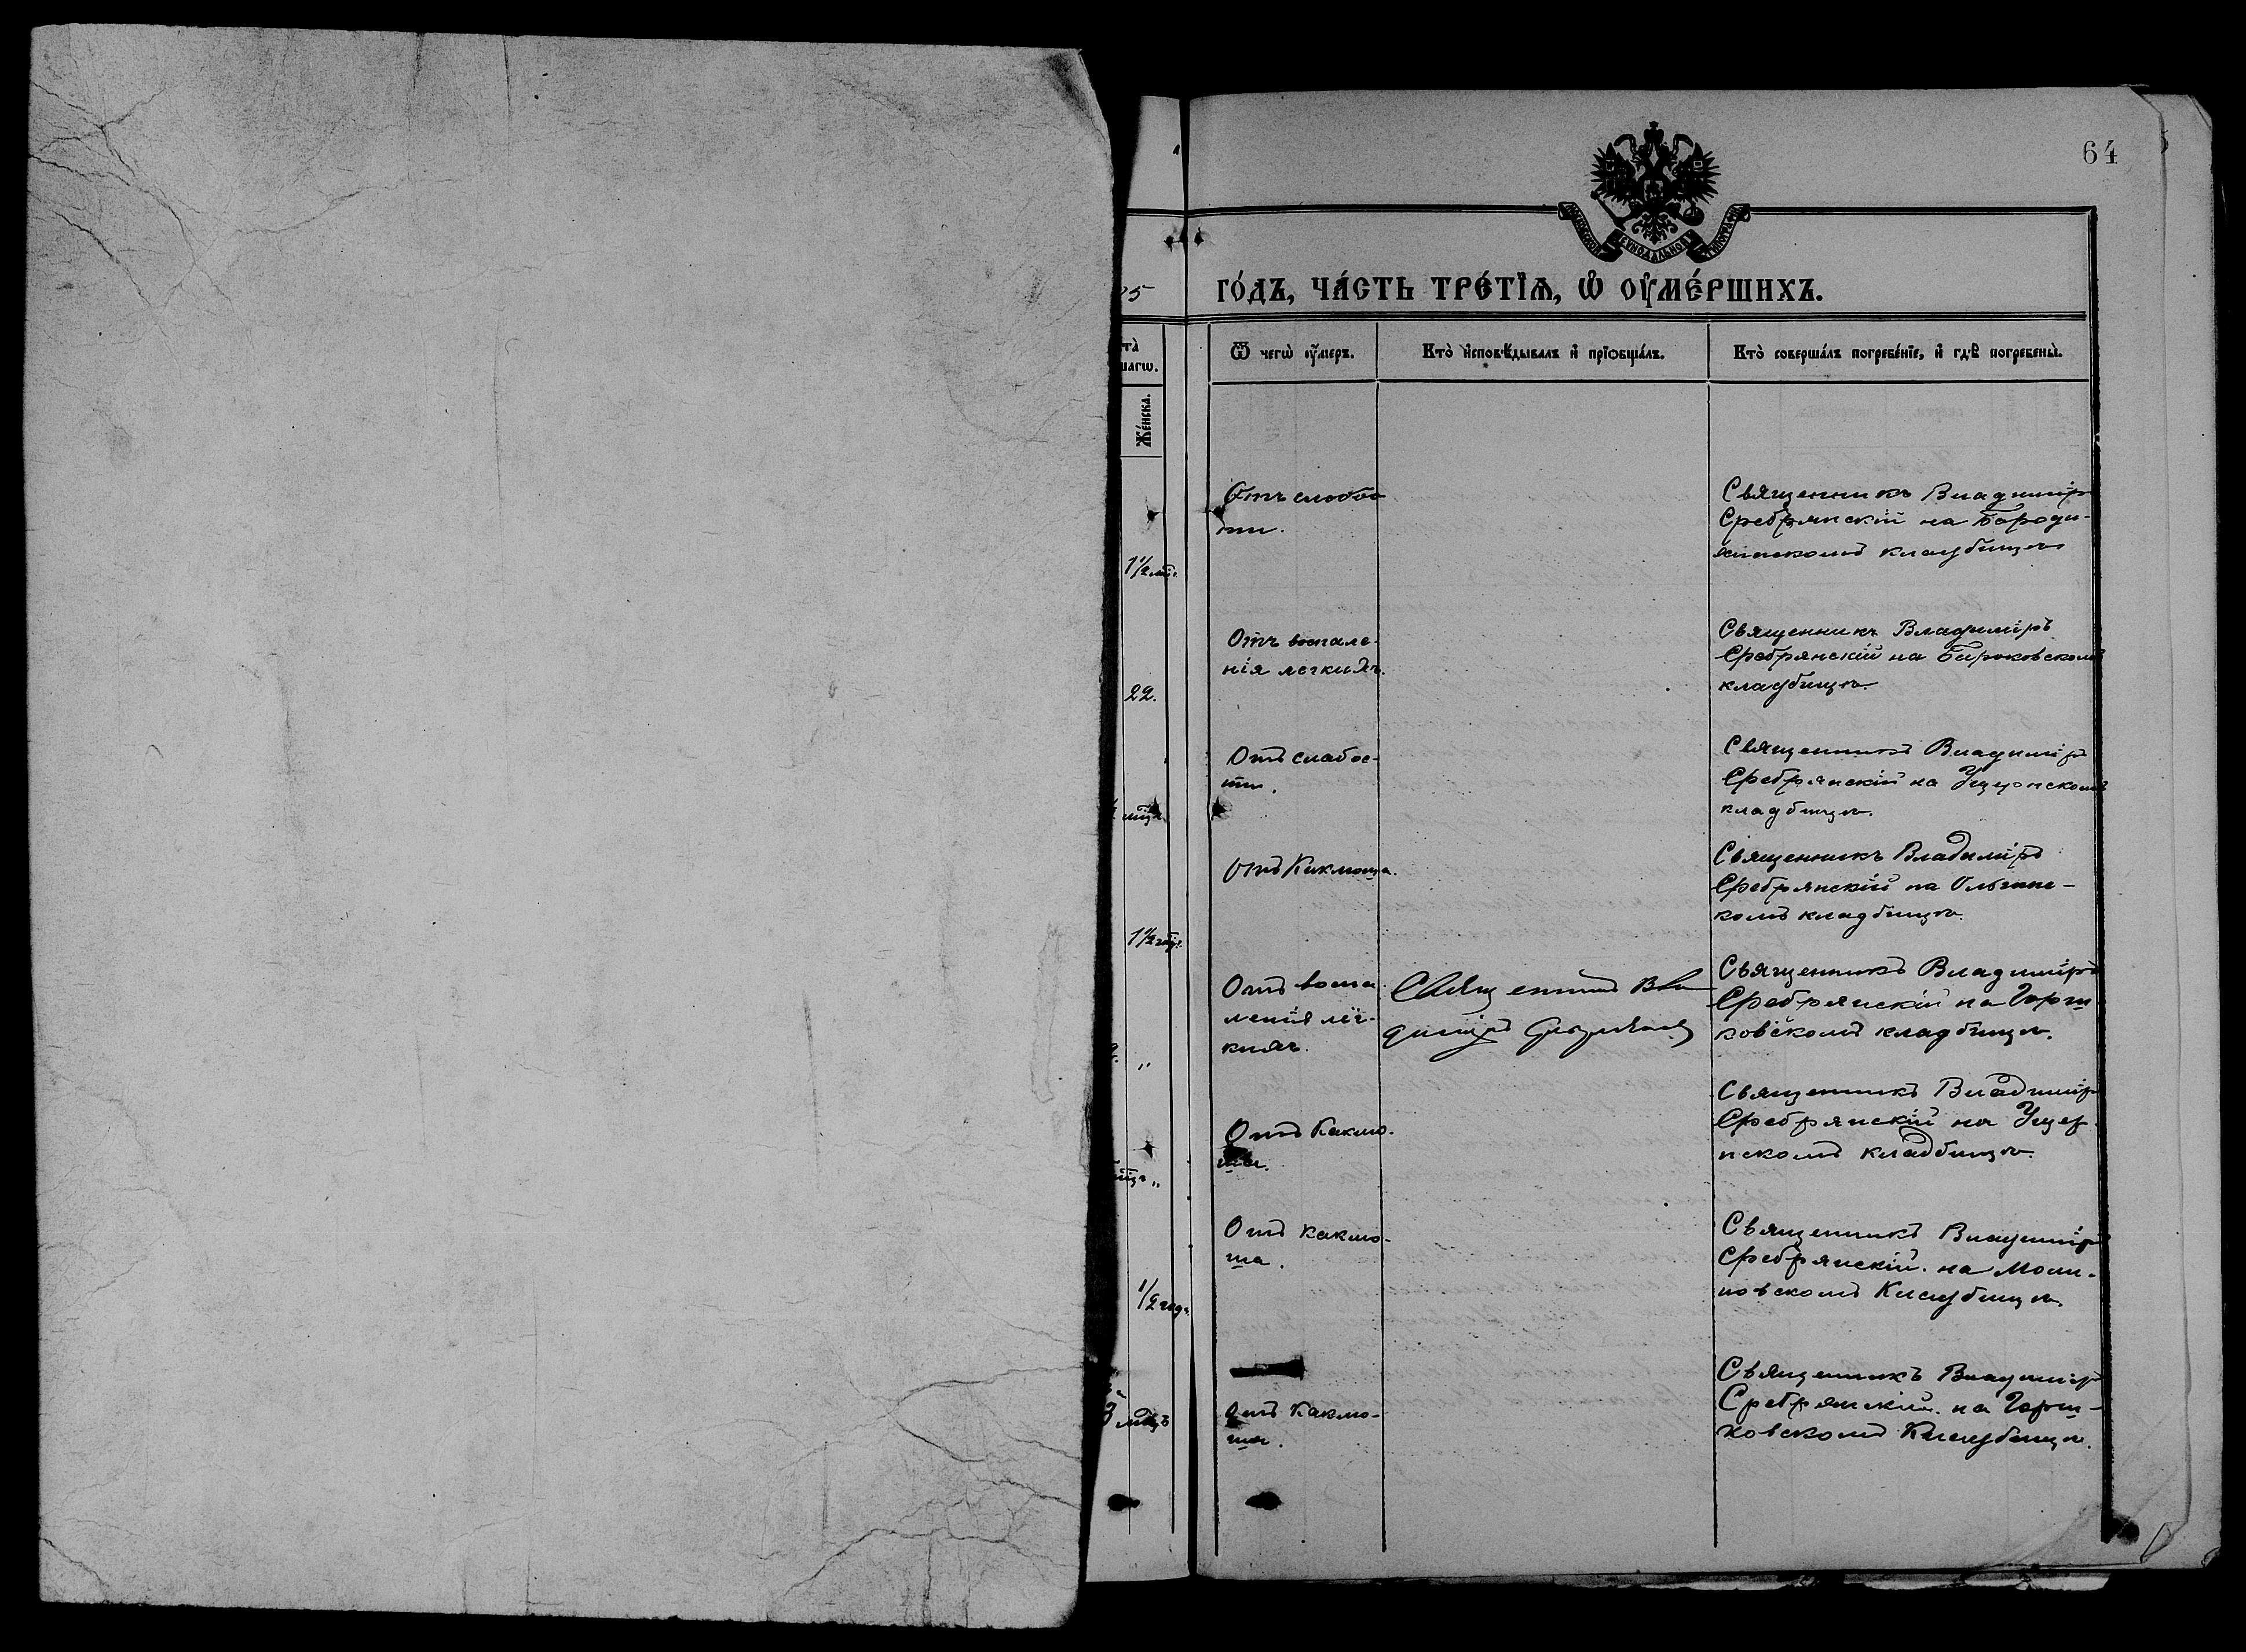 64
МОСКОВСКОЙ СѴНОДАЛЬНОЙ ТИПОГРАФІИ
5
го́дъ, ча́сть тре́тїѧ, ѡ҆ ᲂу҆ме́ршихъ.
Ѿ чегѡ̀ ᲂу҆́меръ.
Кто̀ и҆сповѣ́дывалъ и҆ прїѡбща́лъ.
Кто̀ соверша́лъ погребе́нїе, и҆ гдѣ̀ погребены̀.
Же́нска.
Отъ слабос
ти.
Священникъ Владиміръ
Сребрянскій на
кладбищѣ
1 1/2
Отъ воспале-
нія легкихъ.
Священникъ Владиміръ
Сребрянскій на Бирюковскомъ
кладбищѣ.
22.
Отъ слабос-
ти.
Священникъ Владиміръ
Сребрянскій на
кладбищѣ.
Отъ Коклюша.
Священникъ Владиміръ
Сребрянскій на Ольгинс-
комъ кладбищѣ.
1 1/2
Отъ воспа
ленія лег-
кихъ.
Священникъ Вла
диміръ Сребрянскій
Священникъ Владиміръ
Сребрянскій на Горш
ковскомъ кладбищѣ.
"
Отъ Коклю-
ша.
Священникъ Владиміръ
Сребрянскій на
кладбищѣ.
"
Отъ коклю-
ша.
Священникъ Владиміръ
Сребрянскій на
кладбищѣ.
1/2 года
Отъ Коклю-
ша.
Священникъ Владиміръ
Сребрянскій на Горш-
ковскомъ Кладбищѣ.
3 мѣсц